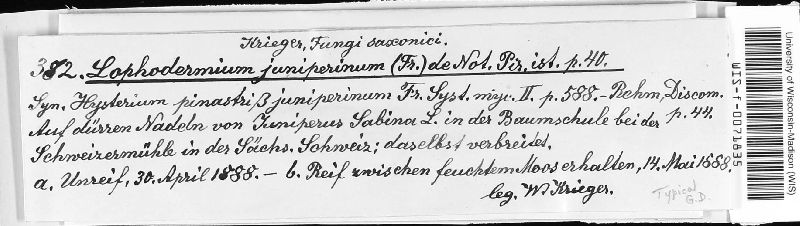 Krieger, Fungi saxonici.
382. Lophodermium juniperinum (Fr.) de Not. Pir. ist. p. 40.
Syn. Hysterium pinastri β juniperinum Fr. Syst. myc. II. p. 588. – Rehm, Discom. p. 44.
Auf dürren Nadeln von Juniperus Sabina L. in der Baumschule bei der
Schweizermühle in der Sächs. Schweiz; daselbst verbreitet.
a. Unreif, 30. April 1888. – b. Reif zwischen feuchtem Moos erhalten, 14. Mai 1888.
leg. W. Krieger.
Typical
G.D.
University of Wisconsin-Madison (WIS)
WIS-f-0071835